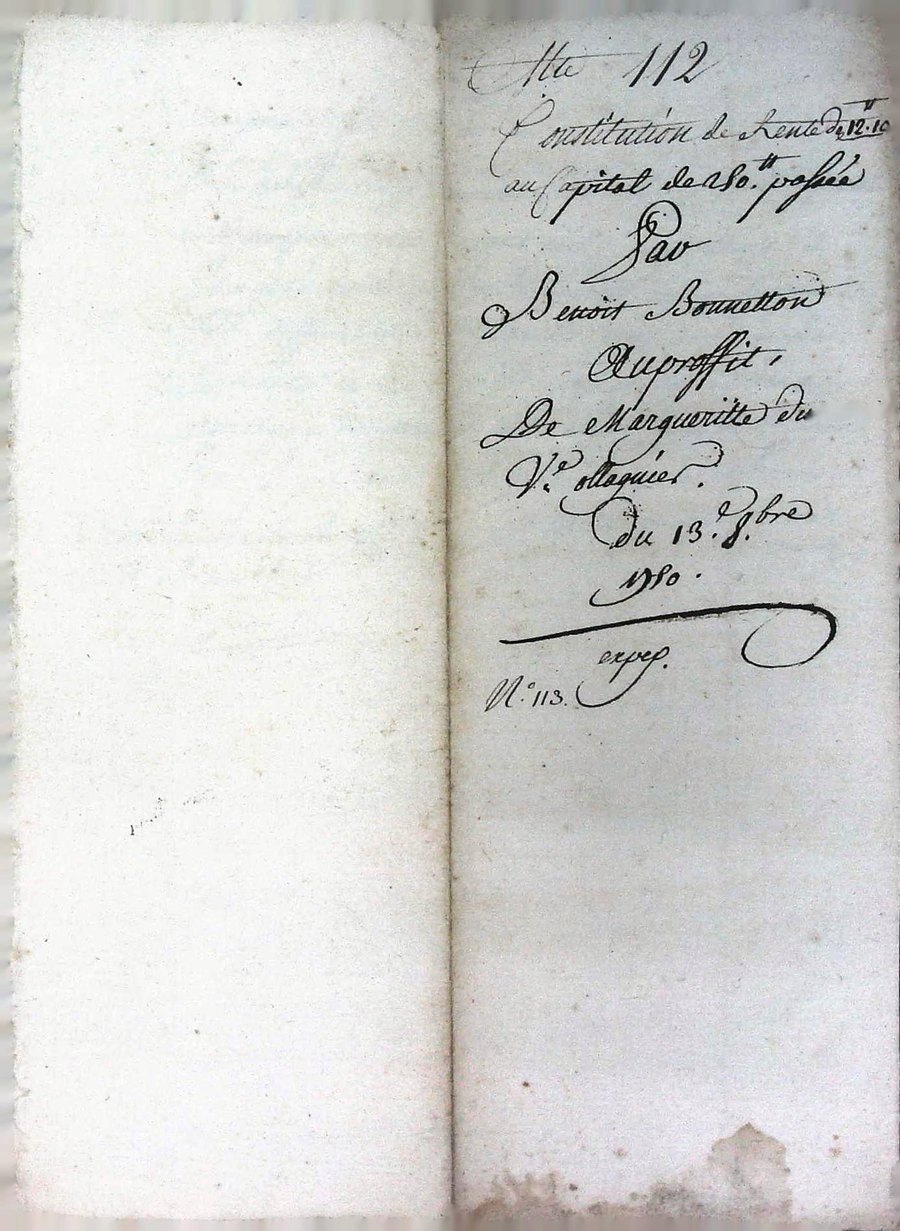 Cotte 112
Constitution de Rente de 12.10
au Capital de 250.tt passée
Par
Benoit Bonnetton
Auproffit,
De Margueritte du
Ve. ollagnier.
du 13.e 8.bre
1780.
exper.
N.o 113.